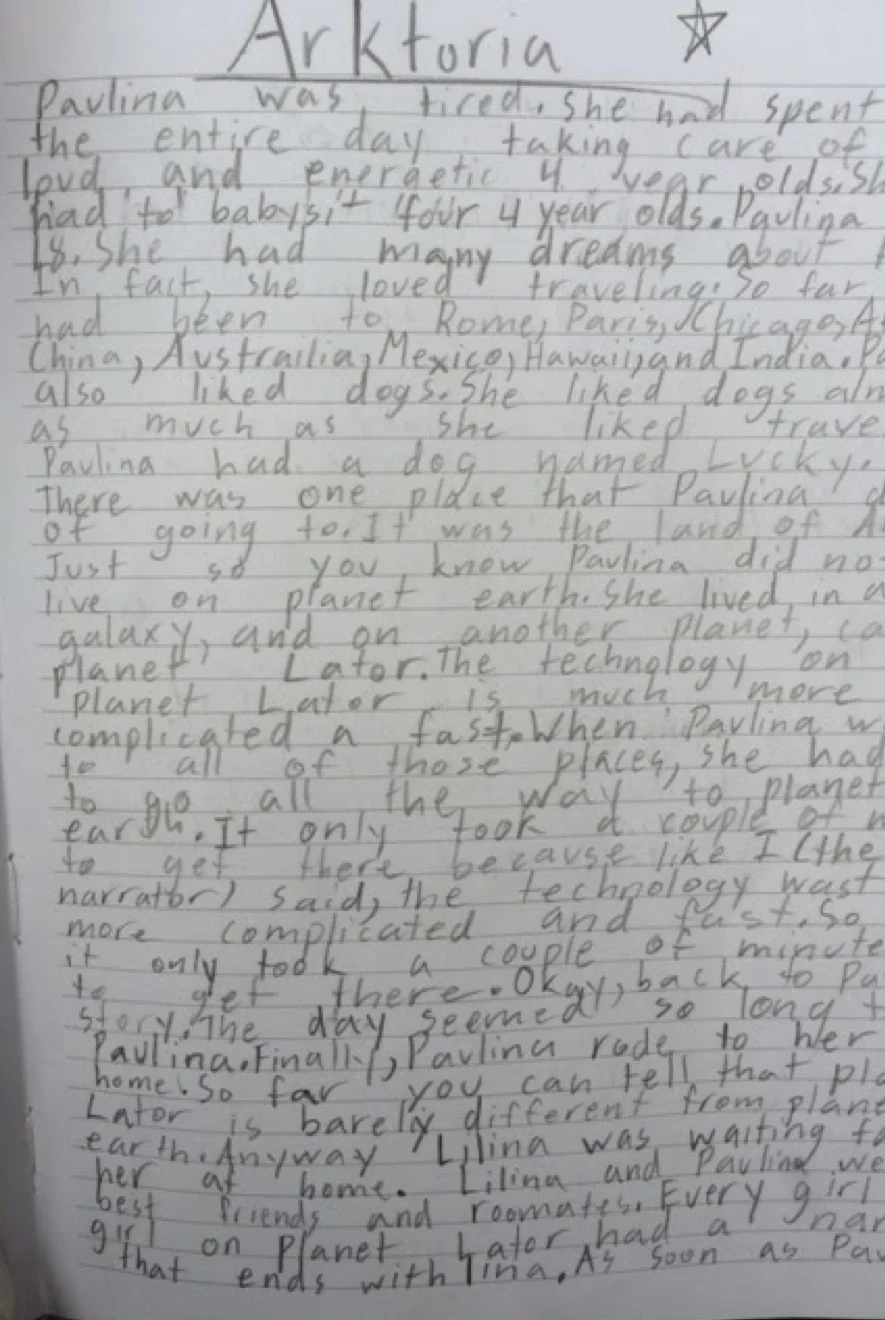 Arktoria
Pavlina was tired. She had spent
the entire day taking care of
loud and energetic 4 year olds. Sh
had to babysit four 4 year olds. Pavlina
18. She had many dreams about
In fact, she loved traveling. So far
had been to Rome, Paris, Chicago, A
China, Austrailia, Mexico, Hawaii, and India. Pa
also liked dogs. She liked dogs alm
as much as she liked trave
Pavlina had a dog named Lucky.
There was one place that Pavlina d
of going to. It was the land of A
Just so you know Pavlina did no
live on planet earth. She lived in a
galaxy, and on another planet, ca
planet Lator. The technology on
planet Lator is much more
complicated a fast. When Pavlina w
to all of those places, she had
to go all the way to planet
earth. It only took a couple of m
to get there because like I (the
narrator) said, the technology wast
more complicated and fast. So
it only took a couple of minute
to get there. Okay, back to Pa
story. The day seemed so long t
Pavlina. Finally, Pavlina rode to her
home. So far you can tell that pla
Lator is barely different from plane
earth. Anyway Lilina was waiting fo
her at home. Lilina and Pavlina we
best friends and roomates. Every girl
girl on Planet Lator had a nam
that ends with ina. As soon as Pav